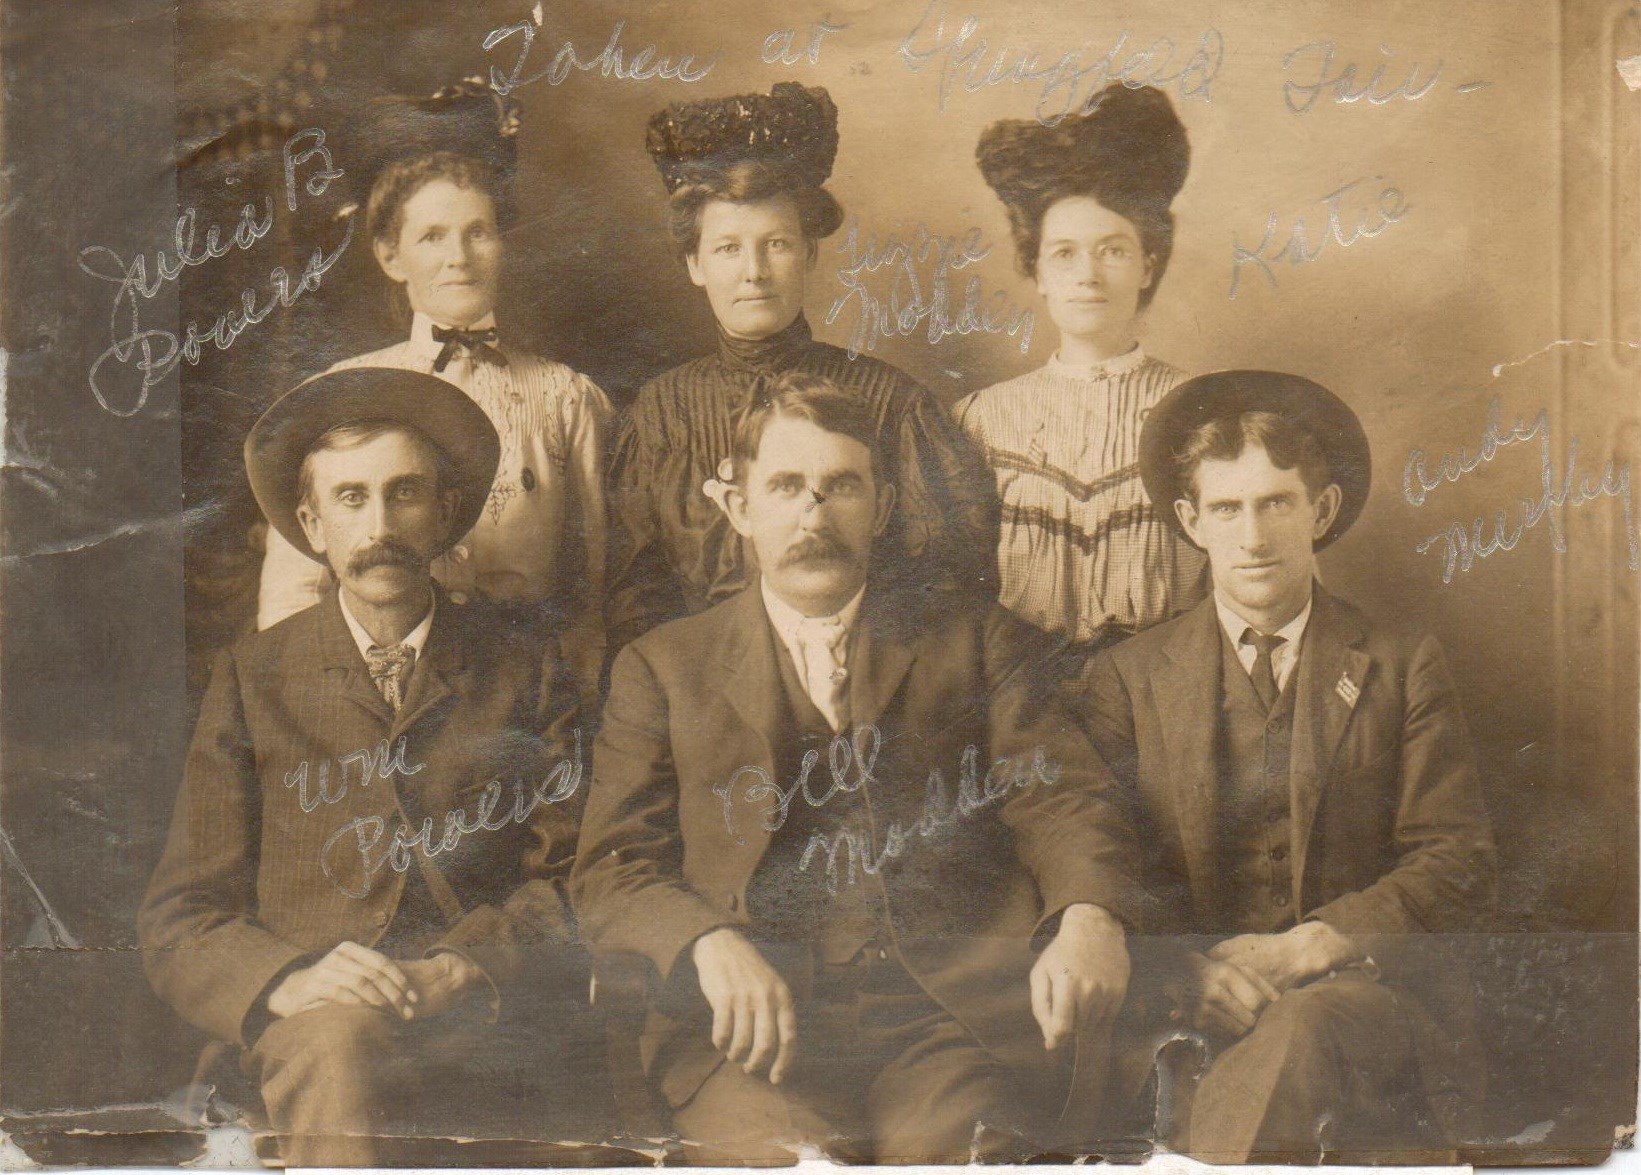 Taken at Springfield Fair-
Julia B
Powers
Lizzie
Madden
Katie
Andy
Murphy
Wm
Powers
Bill
Madden